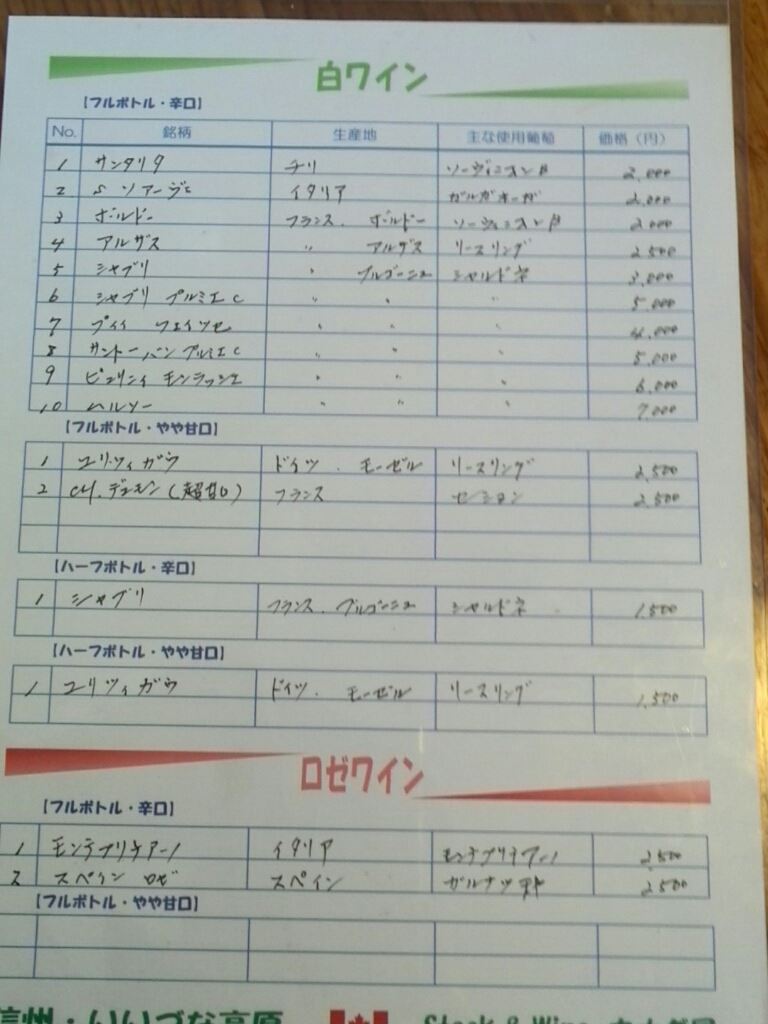 白ワイン
【フルボトル・辛口】
No. 銘柄 生産地 主な使用葡萄 価格（円）
1 サンタリタ チリ ソーヴィニオンB 2,000
2 S ソアーヴェC イタリア ガルガネーガ 2,000
3 ボルドー フランス． ボルドー ソーヴィニオンB 2,000
4 アルザス 〃 アルザス リースリング 2,500
5 シャブリ 〃 ブルゴーニュ シャルドネ 3,000
6 シャブリ プルミエC 〃 〃 〃 5,000
7 プイィ フュイッセ 〃 〃 〃 4,000
8 サントーバン プルミエC 〃 〃 〃 5,000
9 ピュリニィ モンラッシェ 〃 〃 〃 6,000
10 ムルソー 〃 〃 〃 7,000
【フルボトル・やや甘口】
1 ユリツィガウ ドイツ． モーゼル リースリング 2,500
2 CH. デュモン（超甘口） フランス セミヨン 2,500
【ハーフボトル・辛口】
1 シャブリ フランス．ブルゴーニュ シャルドネ 1,500
【ハーフボトル・やや甘口】
1 ユリツィガウ ドイツ． モーゼル リースリング 1,500
ロゼワイン
【フルボトル・辛口】
1 モンテプリチアーノ イタリア モンテプリチアーノ 2,500
2 スペイン ロゼ スペイン ガルナッチャ 2,500
【フルボトル・やや甘口】
信州・いいづな高原 Steak & Wine